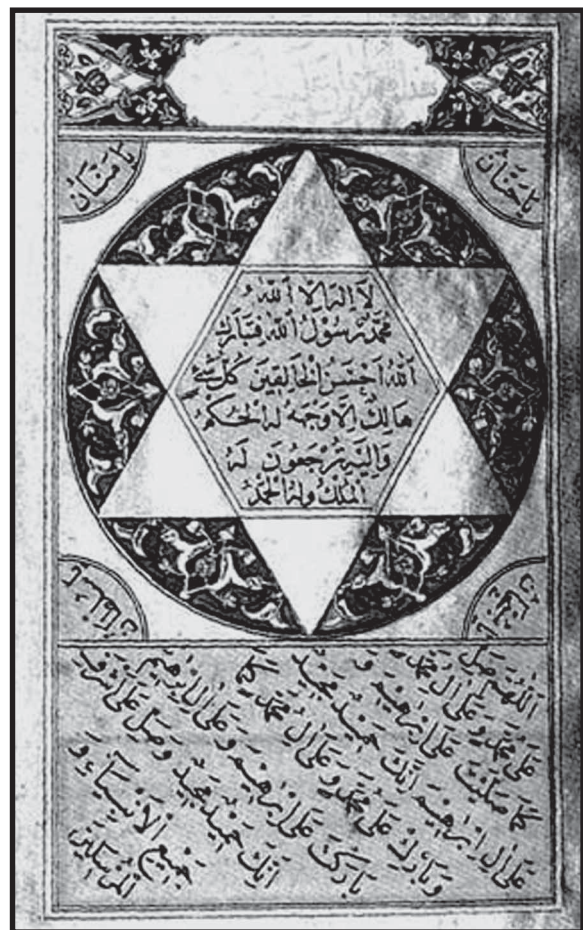 يا حنان
يا منان
لا إله إلا الله
محمد رسول الله فتبارك
الله أحسن الخالقين كل شيء
هالك إلا وجهه له الحكم
وإليه ترجعون له
الملك وله الحمد
اللهم صل
على محمد وعلى آل محمد
كما صليت على إبراهيم و
على آل إبراهيم إنك حميد مجيد
وبارك على محمد وعلى آل محمد كما
باركت على إبراهيم وعلى آل إبراهيم
إنك حميد مجيد وصل على أشرف
جميع الأنبياء و
المرسلين